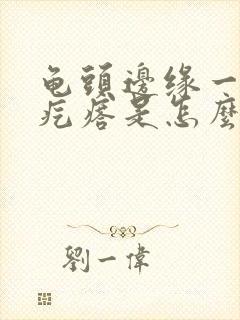 龟頭邊緣一
疙瘩是怎麼
劉一偉